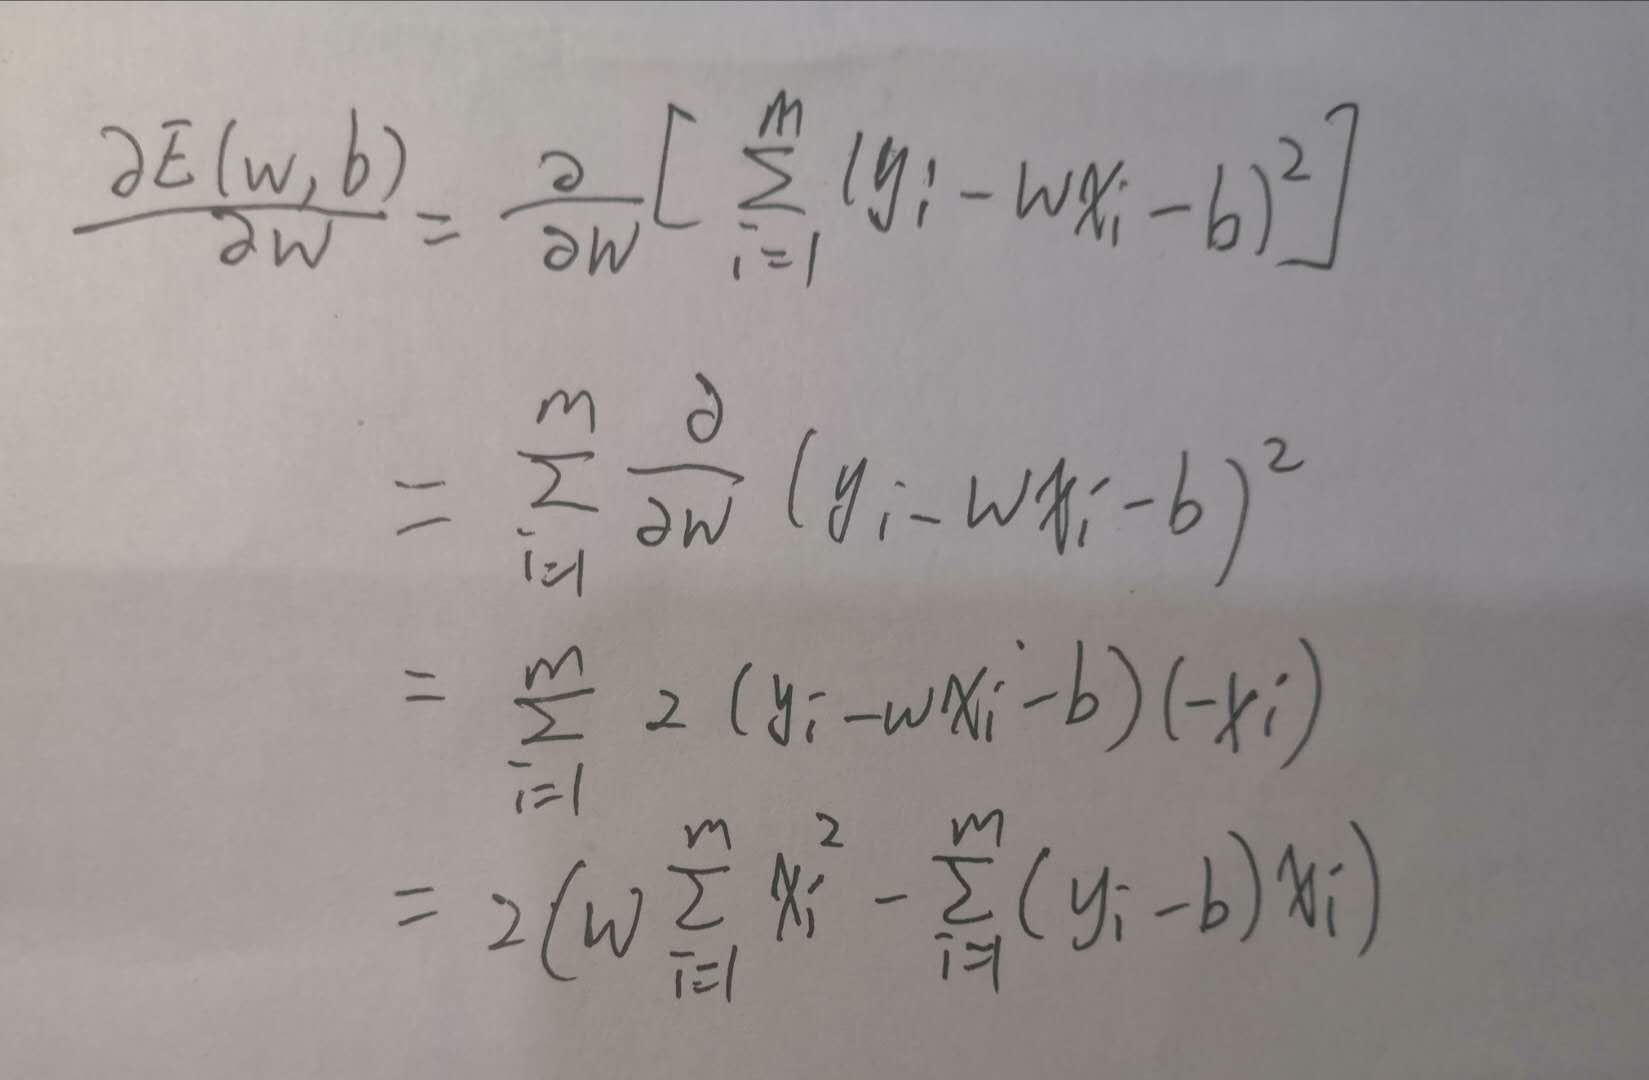 ∂E(w,b)/∂w = ∂/∂w [ ∑_{i=1}^{m} (y_i - wx_i - b)^2 ]
= ∑_{i=1}^{m} ∂/∂w (y_i - wx_i - b)^2
= ∑_{i=1}^{m} 2 (y_i - wx_i - b)(-x_i)
= 2(w ∑_{i=1}^{m} x_i^2 - ∑_{i=1}^{m} (y_i - b)x_i)